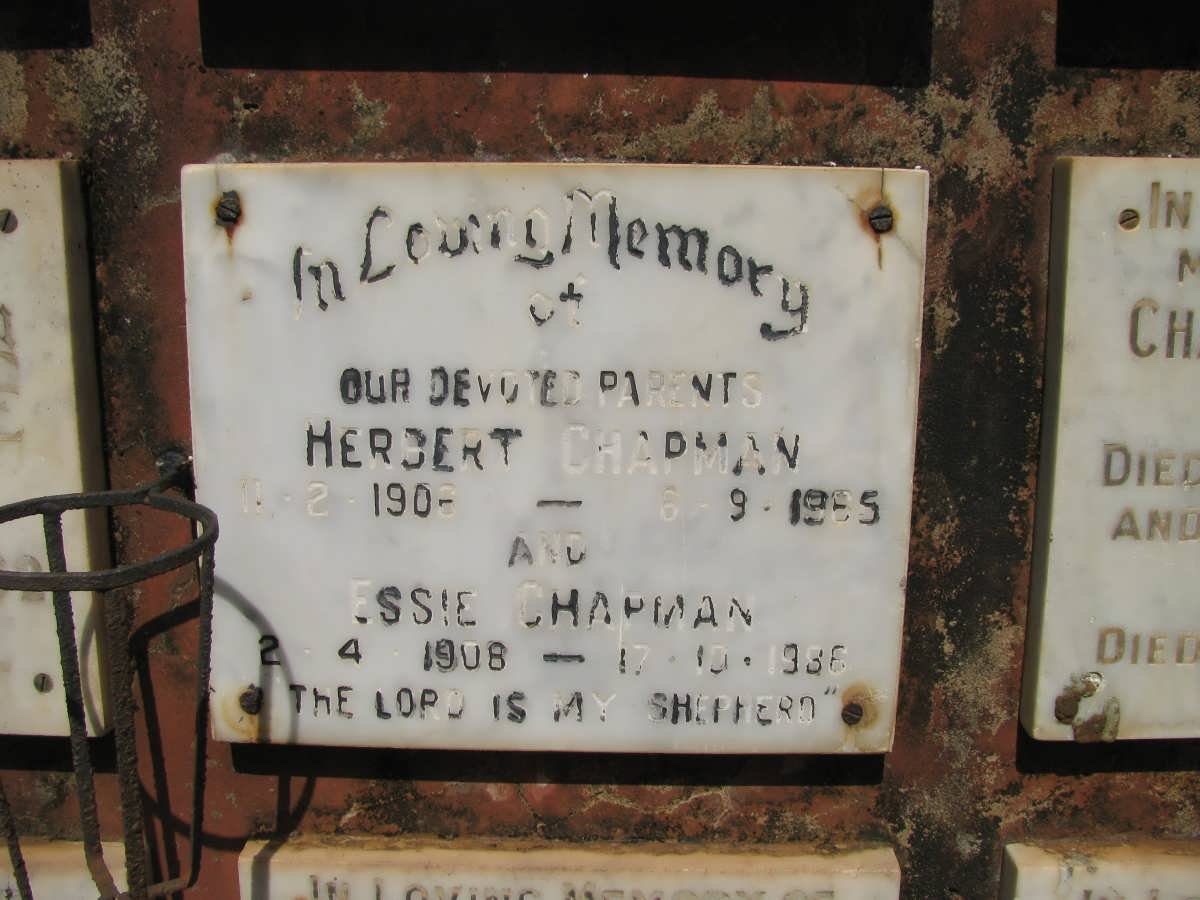 In Loving Memory
of
OUR DEVOTED PARENTS
HERBERT CHAPMAN
11 · 2 · 1908 — 8 · 9 · 1985
AND
ESSIE CHAPMAN
2 · 4 · 1908 — 17 · 10 · 1986
"THE LORD IS MY SHEPHERD"
IN
DIED
AND
DIED
IN LOVING MEMORY OF